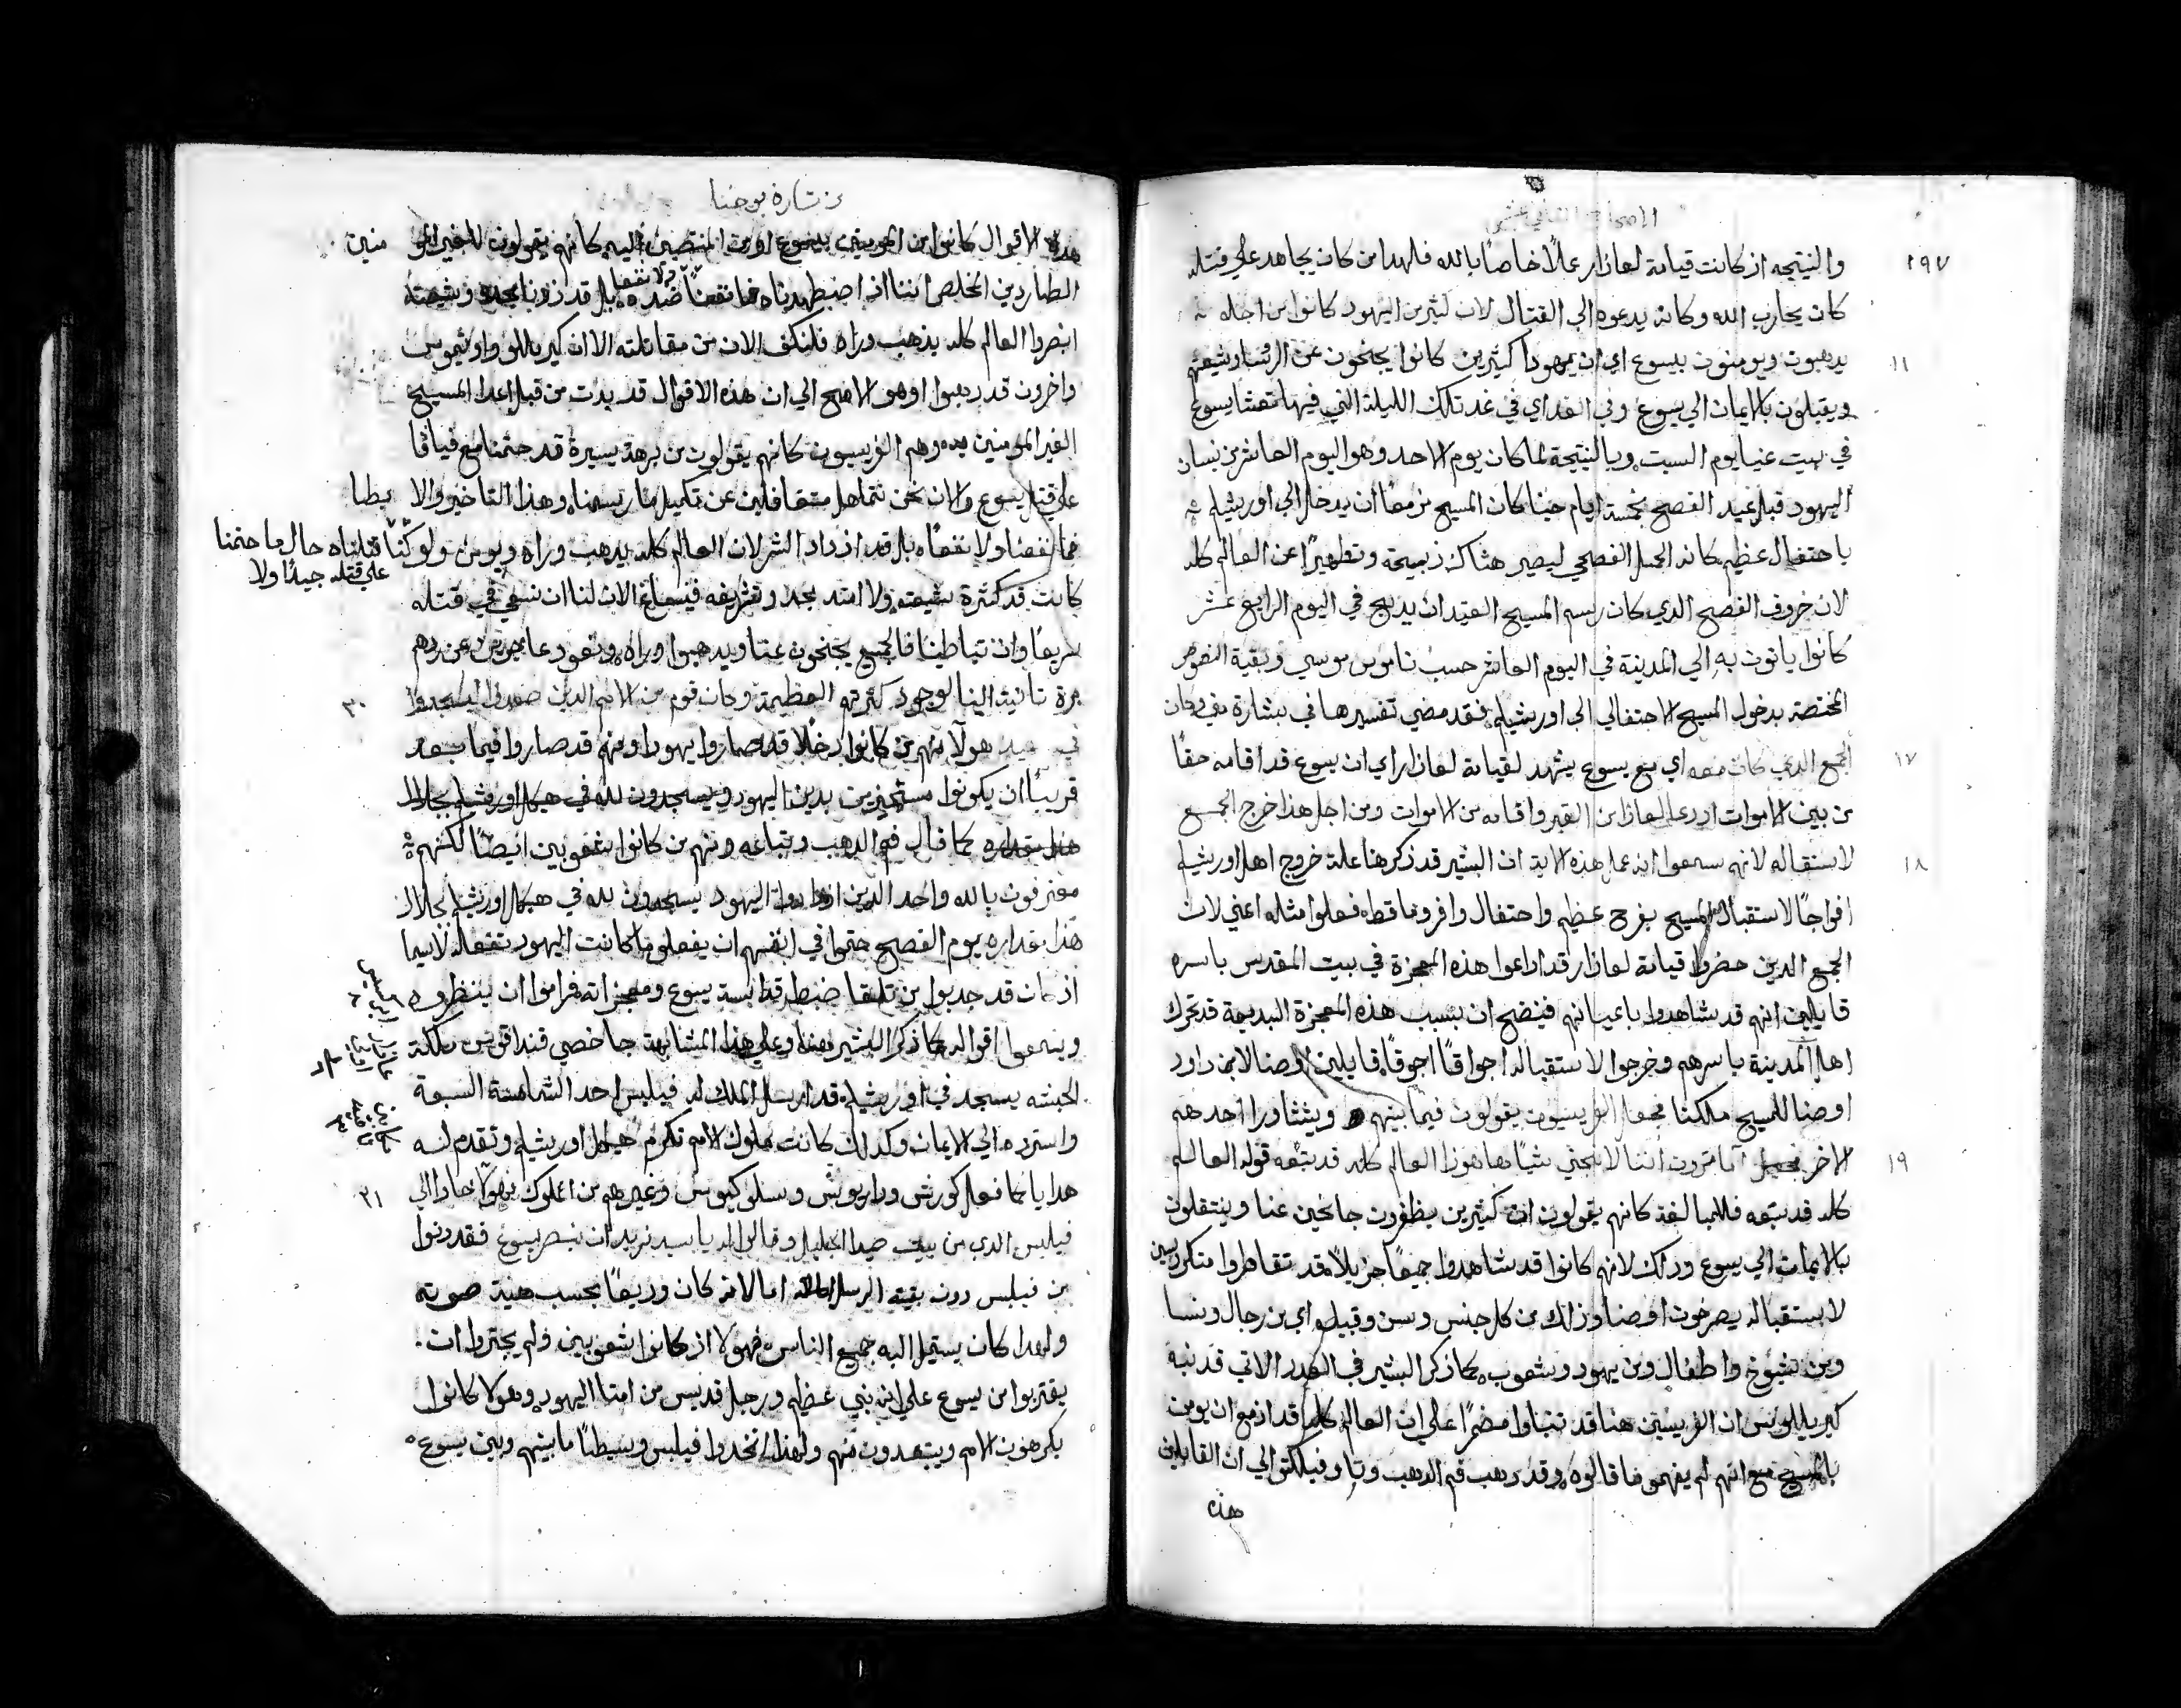 الاصحاح الثاني عشر
١٩٧
والنتيجه اذ كانت قيامة لعازار عملاً خاصاً بالله فلهدا من كان يجاهد علي قتله
كان يحارب الله وكانه يدعوه الي القتال لان كثيرين اليهود كانوا من اجله
١١
يدهبون ويومنون بيسوع اي ان يهودا كثيرين كانوا يجنحون عن الروسا وشيعتهم
ويقبلون بالايمان الي يسوع وفي الغد اي في غد تلك الليلة التي فيها تعشا يسوع
في بيت عنيا يوم السبت وبالنتيجة لما كان يوم الاحد وهو اليوم العاشر من نيسان
اليهود قبل عيد الفصح بخمسة ايام حينا كان المسيح مزمعاً ان يدخل الي اورشليم
باحتفال عظيم كانه الحمل الفصحي ليصير هناك ذبيحة وتطهيراً عن العالم كله
لان خروف الفصح الدي كان رسم المسيح العتيد ان يدبح في اليوم الرابع عشر
كانوا ياتون به الي المدينة في اليوم العاشر حسب ناموس موسي وبقية النصوص
المختصة بدخول المسيح الاحتفالي الي اورشليم فقد مضي تفسيرها في بشارة متي وكان
١٧
الجمع الدي كان معه اي مع يسوع يشهد لقيامة لعازار اي ان يسوع قد اقامه حقاً
من بين الاموات اد دعا لعازار من القبر واقامه من الاموات ومن اجل هذا خرج الجمع
١٨
لاستقباله لانهم سمعوا انه عمل هذه الاية ان البشير قد ذكر هنا علة خروج اهل اورشليم
افواجاً لاستقبال المسيح بفرح عظيم واحتفال وافر وما قط فعلوا مثله اعني لان
الجمع الدين حضروا قيامة لعازار قد اداعوا هذه المعجزة في بيت المقدس باسره
قايلين انهم قد شاهدوا باعيانهم فيتضح ان بسبب هذه المعجزة البديعة قد تحرك
اهل المدينة باسرهم وخرجوا لاستقباله اجواقاً اجوقاً قايلين اوصنا لابن داود
اوصنا للمسيح ملكنا فجعل الفريسيون يقولون فيما بينهم ويتشاورا احدهم
١٩
الاخر اما ترون اننا لا نجني شياً هاهوذا العالم كله قد تبعه قوله العالم
كله قد تبعه فللمبالغة كانهم يقولون ان كثيرين يظفرون جانحين عنا وينتقلون
بالايمان الي يسوع ودلك لانهم كانوا قد شاهدوا جمعاً جزيلاً قد تقاطروا متكردسين
لاستقباله يصرخون اوصنا وذلك من كل جنس وسن وقبيل اي من رجال ونسا
ومن شيوخ واطفال ومن يهود وشعوب كما ذكر البشير في العدد الاتي قد نبه
كيرياللوس ان الفريسيين هنا قد تنباوا مضمراً علي ان العالم كله قد ازمع ان يومن
بالمسيح مع انهم لم يفهموا ما قالوه وقد دهب فم الدهب وتاوفيلكتوس الي ان القايلين
هذه
من بشارة يوحنا
هذه الاقوال كانوا من المومنين بيسوع او من المنتصبين اليه كانهم يقولون للغير المومنين
الطاردين المخلص اننا اذ اضطهدناه فما نفعنا ولا نفعا ضده بل قد زدنا مجده وشيعته
انضروا العالم كله يدهب وراه فلنكف الان من مقاتلته الا ان كيرياللوس واوثيموس
واخرون قد دهبوا وهو الاصح الي ان هذه الاقوال قد بدت من قبل اعدا المسيح
الغير المومنين به وهم الفريسيون كانهم يقولون من برهة يسيرة قد حتمنا مع قيافا
علي قتل يسوع والان نحن نتماهل متغافلين عن تكميل ما رسمناه وهذا التاخير والابطا
فما نفعنا ولا نفعاً بل قد ازداد الشر لان العالم كله يدهب وراه ويومن ولو كنا قتلناه حال ما حتمنا
علي قتله جيداً ولا
كانت قد كثرة شيعته ولا امتد مجده وتشريفه فينبغي الان لنا ان نسعي في قتله
سريعاً وان تباطينا فالجميع يجنحون عنا ويدهبوا وراه ونعود عاجزين عن ردهم
٢٠
مرة تانية الينا لوجود كثرتهم العظيمة وكان قوم من الامم الدين صعدوا ليسجدوا
في العيد هولا منهم من كانوا دخلا قد صاروا يهودا ومنهم قد صاروا فيما بعد
قريباً ان يكونوا متحيزين بدين اليهود ويسجدون لله في هيكل اورشليم بجلال
هذا مقداره كما قال فم الدهب وتباعه ومنهم من كانوا شعوبين ايضاً لكنهم
معترفون بالله واحد الدين اذ راوا اليهود يسجدون لله في هيكل اورشليم بجلال
هذا مقداره يوم الفصح حتموا في انفسهم ان يفعلوا ما كانت اليهود تفعله لاسيما
اذ كان قد جدبوا من تلقا ضبط قداسة يسوع ومعجزاته فراموا ان ينظروه
ويسمعوا اقواله كما ذكر البشير هنا وعلي هذا المشابهة جا خصي قنداقس ملكة
الحبشه يسجد في اورشليم قد ارسل الملك له فيلبس احد الشمامسة السبعة
واسترده الي الايمان وكدلك كانت ملوك الامم تكرم هيكل اورشليم وتقدم له
٢١
هدايا كما فعل كورش وداريوش وسلوكيوس وغيرهم من الملوك فهولا جاوا الي
فيلبس الدي من بيت صيدا الجليل وقالوا له يا سيد نريد ان نبصر يسوع فقد دنوا
من فيلبس دون بقية الرسل اما لانه كان وديعاً بحسب هيئة صورته
ولهدا كان يستميل اليه جميع الناس فهولا اذ كانوا شعوبين ولم يجتروا ان
يقتربوا من يسوع علي انه نبي عظيم ورجل قديس من امتا اليهود وهولا كانوا
يكرهون الامم ويبتعدون منهم ولهذا اتخدوا فيلبس وسيطاً ما بينهم وبين يسوع